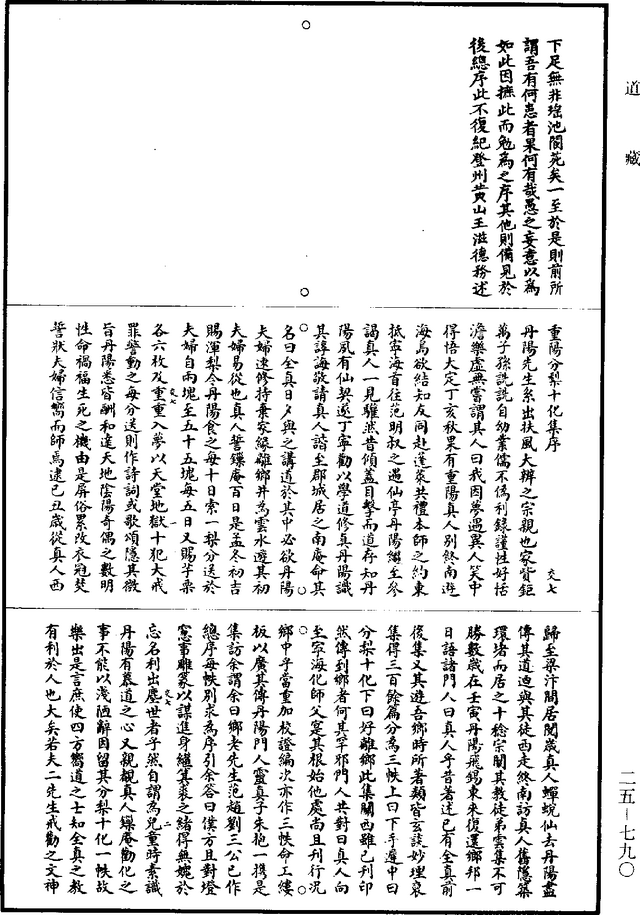 道藏
下足無非瑤池閬苑矣一至於是則前所
謂吾有何患者果何有哉愚之妄意以為
如此因摭此而勉為之序其他則備見於
後總序此不復紀登州黃山王滋德務述
重陽分梨十化集序
交七
丹陽先生系出扶風大辨之宗親也家貲鉅
萬子孫詵詵自幼業儒不僞利祿謹性好恬
澹樂虛無嘗謂其人曰我因夢遇異人笑中
得悟大定丁亥秋果有重陽真人別終南遊
海島欲結知友同赴蓬萊共禮本師之約東
抵寧海首徃范明叔之遇仙亭丹陽繼至參
謁真人一見驩然昔傾蓋目擊而道存知丹
陽夙有仙契遂丁寧勸以學道修真丹陽識
其諄誨敬請真人諧至郡城居之南庵命其
名曰全真日夕與之講道於其中必欲丹陽
夫婦速修持棄家緣離鄉井為雲水遊其初
夫婦易從也真人誓鏁庵百日是孟冬初吉
賜渾梨令丹陽食之每十日索一梨分送於
夫婦自兩塊至五十五塊每五日又賜芋栗
各六枚及重重入夢以天堂地獄十犯大戒
罪警動之每分送則作詩詞或歌頌隱其微
旨丹陽悉皆酬和達天地陰陽奇偶之數明
性命禍福生死之機由是屏俗累改衣冠焚
誓狀夫婦信嚮而師焉逮己丑歲從真人西
歸至梁汴間居閱歲真人蟬蛻仙去丹陽盡
傳其道迺與其徒西走終南訪真人舊隱築
環堵而居之十稔宗闡其教徒弟雲集不可
勝數歲在壬寅丹陽飛錫東來復還鄉邦一
日語諸門人曰真人乎昔著述已有全真前
後集又其遊吾鄉時所著類皆玄談妙理裒
集得三百餘篇分為三帙上曰下手遲中曰
分梨十化下曰好離鄉此集關西雖已刊印
然傳到鄉者何其罕邪門人共對曰真人向
至寧海化師父寔其根始他處尚且刊行況
鄉中乎當重加校證編次亦作三帙命工鏤
板以廣其傳丹陽門人靈真子朱抱一携是
集訪余謂余曰鄉老先生范趙劉三公已作
總序每帙別求為序引余答曰僕方且對燈
窻事雕篆以謀進身繼箕裘之緒得無媿於
忘名利出塵世者乎然自謂為兒童時素識
丹陽有慕道之心又親覩真人鏁庵勸化之
事不能以淺陋辭因留其分梨十化一帙故
樂出是言庶使四方嚮道之士知全真之教
有利於人也大矣若夫二先生戒勸之文神
二五—七九〇